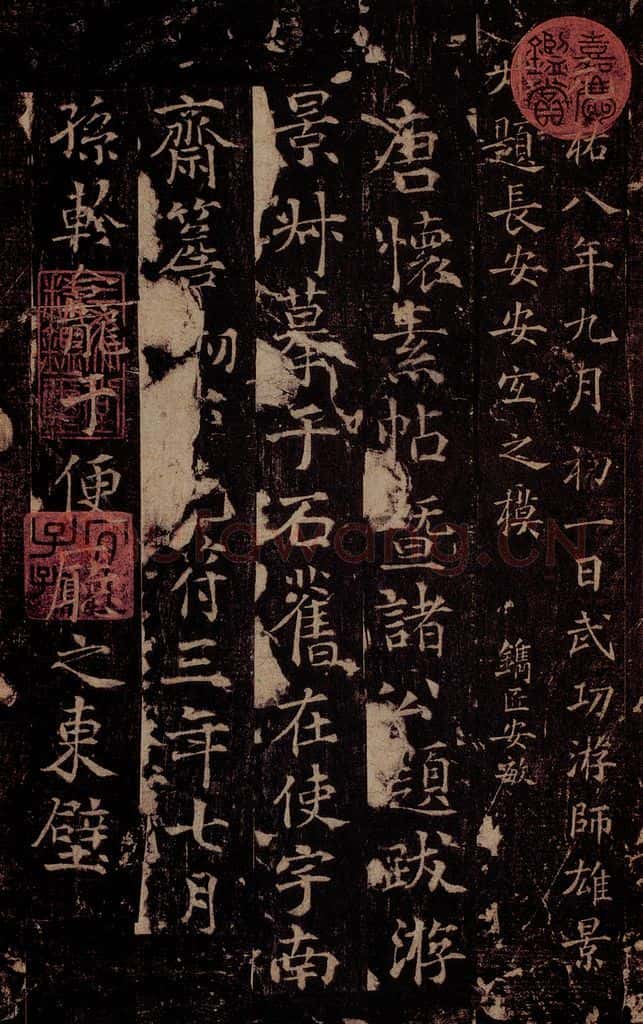 祐八年九月初一日武功游師雄景
題長安安宜之模 鐫匠安敏
唐懷素帖暨諸公題跋游
景叔摹于石舊在使字南
齋簷 符三年七月
孫軫龕于便廳之東壁